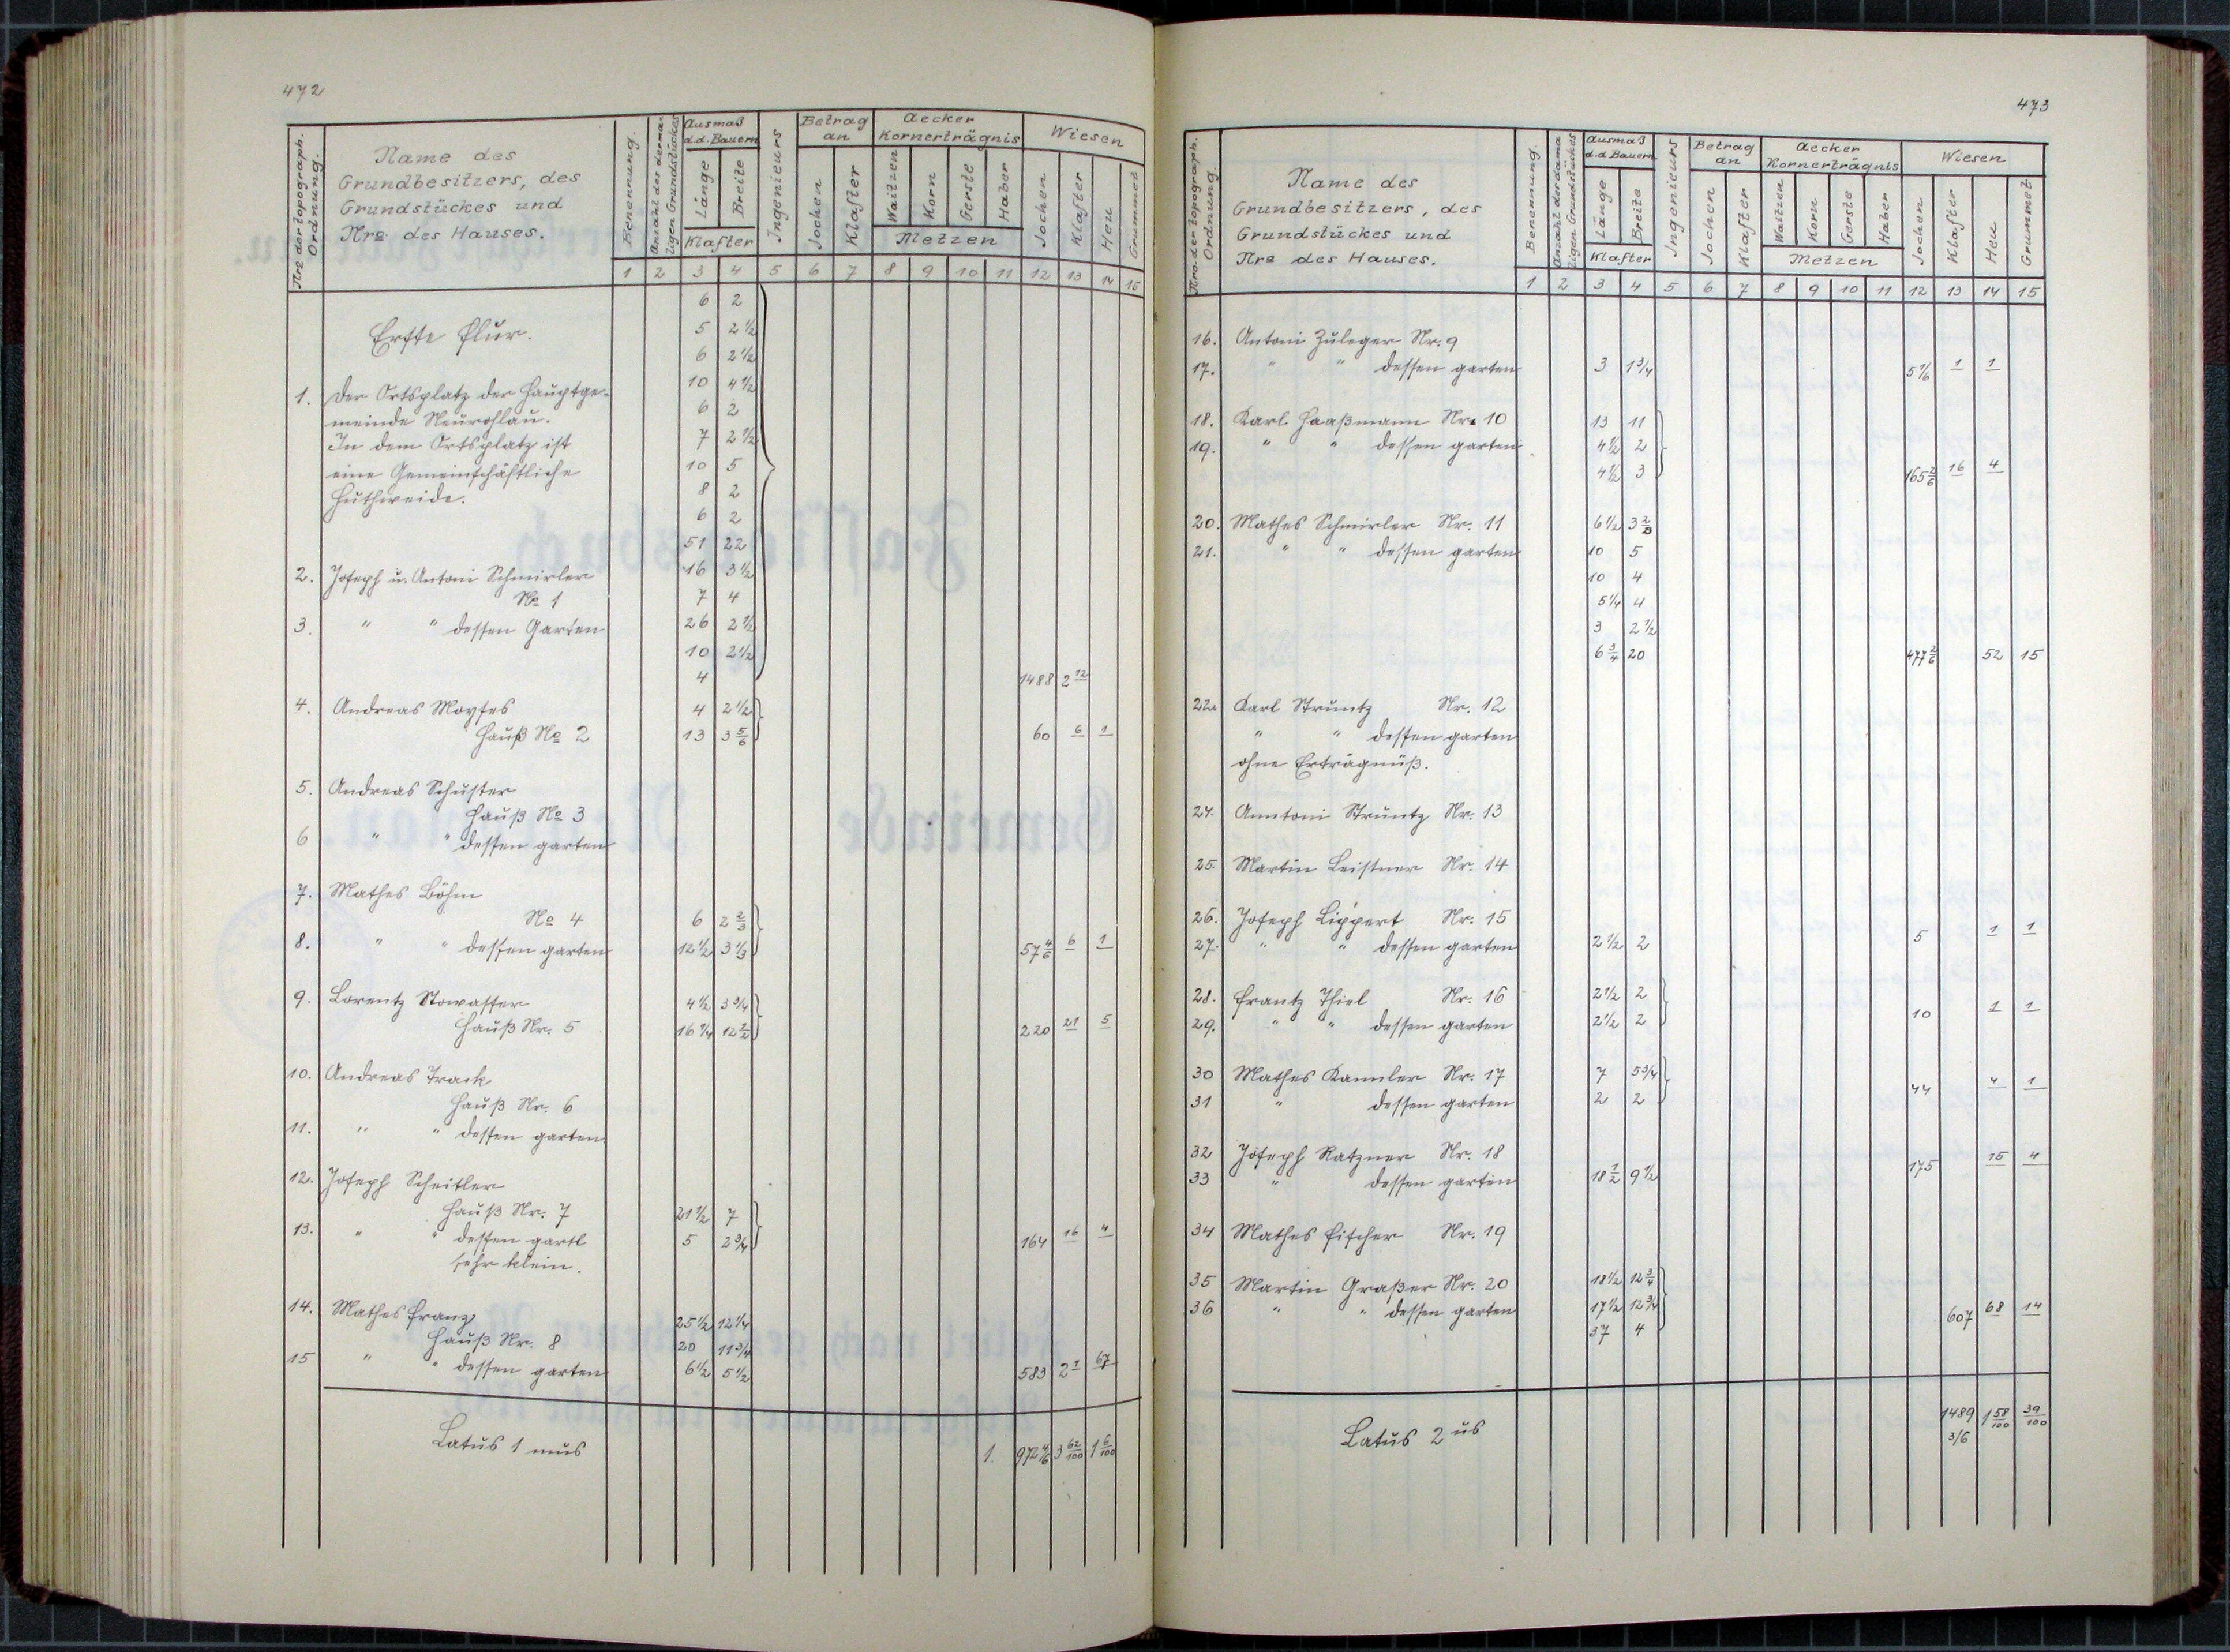 472
Nro der topograph. Ordnung.
Name des
Grundbesitzers, des
Grundstückes und
Nro des Hauses.
Benennung.
Anzahl des derma-
ligen Grundstückes
Ausmaß
d.d. Bauern
Länge Breite
Klafter
Ingenieurs
Betrag
an
Jochen Klafter
Aecker
Kornerträgnis
Waitzen Korn Gerste Haber
Metzen
Wiesen
Jochen Klafter Heu Grummet
1 2 3 4 5 6 7 8 9 10 11 12 13 14 15
6 2
Erste Flur. 5 2 1/2
6 2 1/2
1. Der Ortsplatz der Hauptge- 10 4 1/2
meinde Neurohlau. 6 2
In dem Ortsplatz ist 7 2 1/2
eine Gemeinschäftliche 10 5
Huthweide. 8 2
6 2
51 22
2. Joseph u. Antoni Schmirler 16 3 1/2
No 1 7 4
3. " " dessen Garten 26 2 1/2
10 2 1/2
4 1488 2 12
4. Andreas Moyses 4 2 1/2
Hauß No 2 13 3 5/6 60 6 1
5. Andreas Schuster
Hauß No 3
6 " " dessen garten
7. Mathes Böhm
No 4 6 2 2/3
8. " " dessen garten 12 1/2 3 1/3 57 4/6 6 1
9. Lorentz Stowasser 4 1/2 3 3/4
Hauß Nr. 5 16 1/4 12 1/2 220 21 5
10. Andreas Track
Hauß Nr. 6
11. " " dessen garten
12. Joseph Scheitler
Hauß Nr. 7 21 1/2 7
13. " " dessen gartl 5 2 3/4 164 16 4
sehr klein.
14. Mathes Franz 25 1/2 12 1/4
Hauß Nr. 8 20 11 3/4
15 " " dessen garten 6 1/2 5 1/2 583 2 1 67
Latus 1 mus 1. 972 4/6 3 62/100 1 6/100
473
Nro. der topograph. Ordnung.
Name des
Grundbesitzers, des
Grundstückes und
Nro des Hauses.
Benennung.
Anzahl der dama
ligen Grundstückes
Ausmaß
d.d. Bauern
Länge Breite
Klafter
Ingenieurs
Betrag
an
Jochen Klafter
Aecker
Kornerträgnis
Waitzen Korn Gerste Haber
Metzen
Wiesen
Jochen Klafter Heu Grummet
1 2 3 4 5 6 7 8 9 10 11 12 13 14 15
16. Antoni Zuleger Nr. 9
17. " " dessen garten 3 1 3/4 5 1/6 1 1
18. Karl Haaßmann Nr. 10 13 11
19. " " dessen garten 4 1/2 2
4 1/2 3 165 2/6 16 4
20. Mathes Schmirler Nr. 11 6 1/2 3
21. " " dessen garten 10 5
10 4
5 1/4 4
3 2 1/2
6 3/4 20 477 2/6 52 15
22. Karl Struntz Nr. 12
" " dessen garten
ohne Erträgnüß.
24. Anntoni Struntz Nr. 13
25. Martin Leistner Nr. 14
26. Joseph Lippert Nr. 15
27. " " dessen garten 2 1/2 2 5 1 1
28. Frantz Thiel Nr. 16 2 1/2 2
29. " " dessen garten 2 1/2 2 10 1 1
30 Mathes Kannler Nr. 17 7 5 3/4
31 " dessen garten 2 2 44 4 1
32 Joseph Ratzner Nr. 18
33 " dessen garten 18 1/2 9 1/2 175 15 4
34 Mathes Fischer Nr. 19
35 Martin Graßer Nr. 20 18 1/2 12 3/4
36 " " dessen garten 17 1/2 12 3/4 607 68 14
37 4
Latus 2 us 1489 3/6 1 58/100 39/100